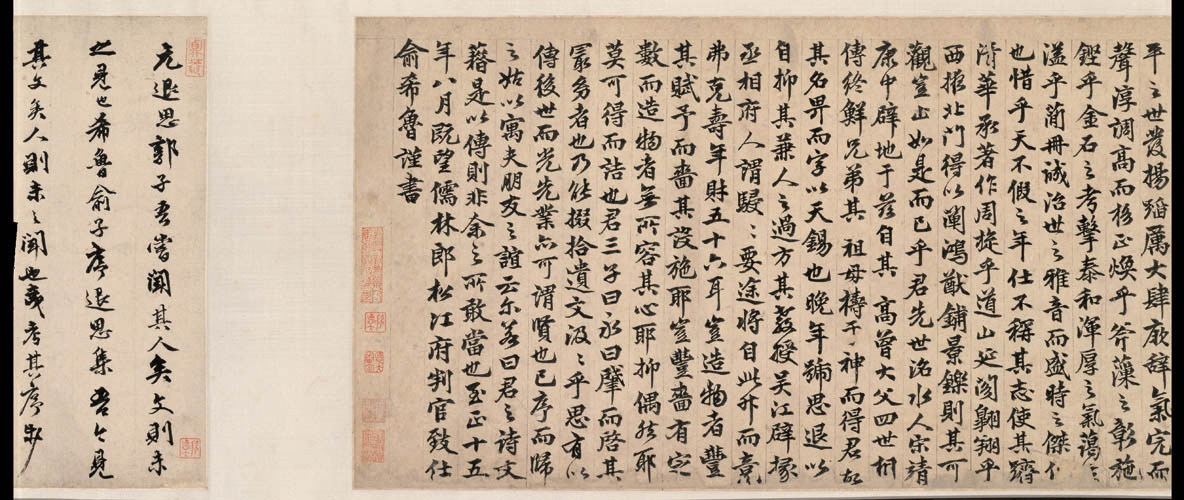 平之世發揚蹈厲大肆厥辭氣完而
聲淳調高而格正煥乎斧藻之彰施
鏗乎金石之考擊泰和渾厚之氣藹々
溢乎簡冊誠治世之雅音而盛時之傑作
也惜乎天不假之年仕不稱其志使其躋
清華承著作周旋乎道山延閣翱翔乎
西掖北門得以闡鴻猷鋪景鑠則其可
觀豈止如是而已乎君先世洺水人宋靖
康中辟地于茲自其高曾大父四世相
傳終鮮兄弟其祖母禱于神而得君故
其名畀而字以天錫也晚年號思退以
自抑其兼人之過方其教授吴江辟掾
丞相府人謂駸々要途將自此升而竟
弗克壽年財五十六耳豈造物者豐
其賦予而嗇其設施耶豈豐嗇有定
數而造物者無所容其心耶抑偶然耶
莫可得而詰也君三子曰永曰肇而啓其
最多者也乃能掇拾遺文汲々乎思有以
傳後世而光先業亦可謂賢也已序而歸
之姑以寓夫朋友之誼云尓若曰君之詩文
藉是以傳則非余之所敢當也至正十五
年八月既望儒林郎松江府判官致仕
俞希魯謹書
元退思郭子吾嘗聞其人矣文則未
之見也希魯俞子序退思集吾今見
其文矣人則未之聞也或考其序